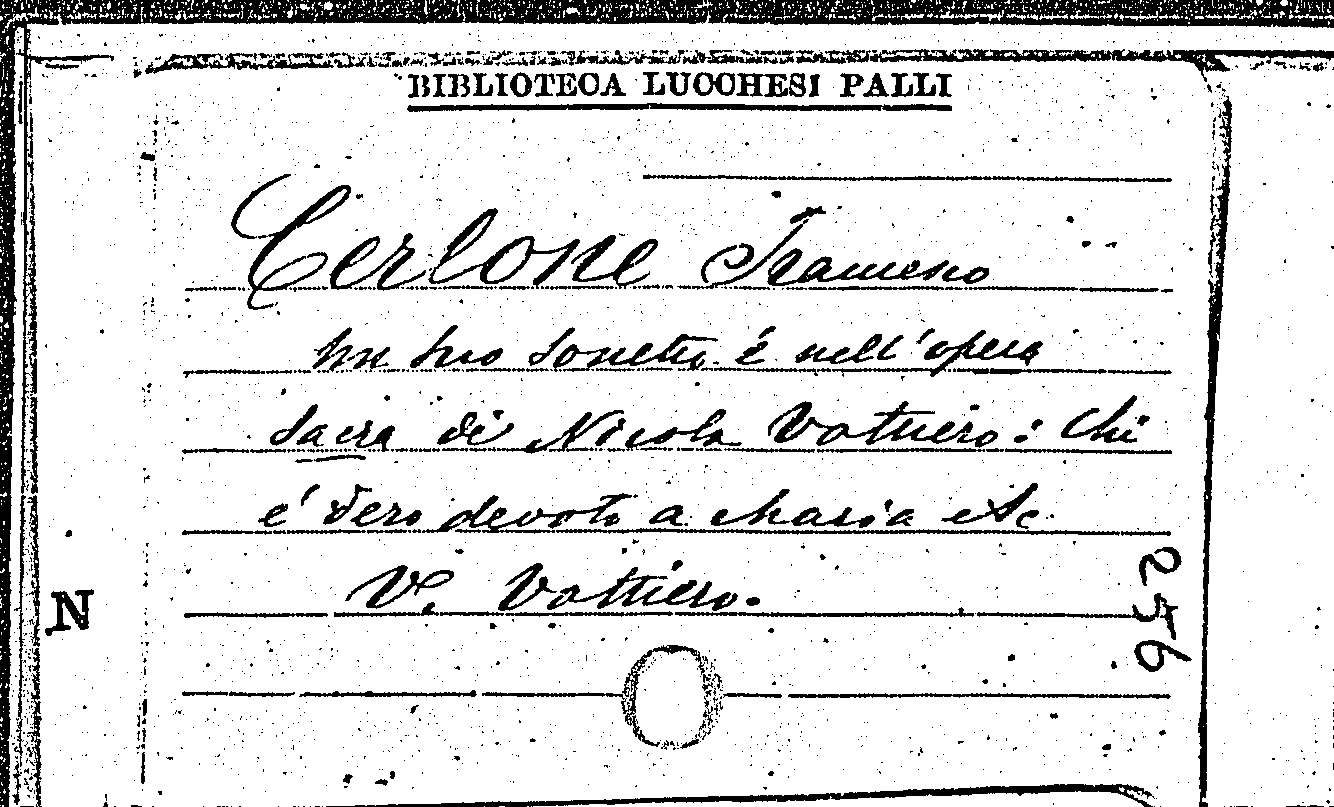 BIBLIOTECA LUCCHESI PALLI
Cerlone Francesco
un suo sonetto é nell'opera
sacra di Nicola Vottiero: Chi
é vero devoto a Maria etc
Ve. Vottiero.
N
256